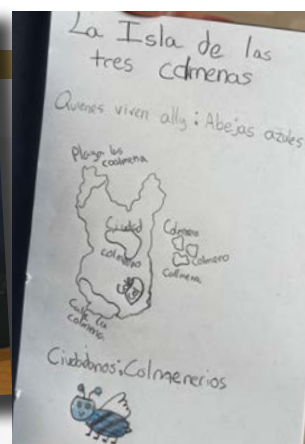 La Isla de las
tres colmenas
Quienes viven ally: Abejas azules
Playa los
coolmena
Ciudad
colmeno
Colmero
Colmero
Colmera
Calle la
colmena
Ciudadanos: Colmenerios